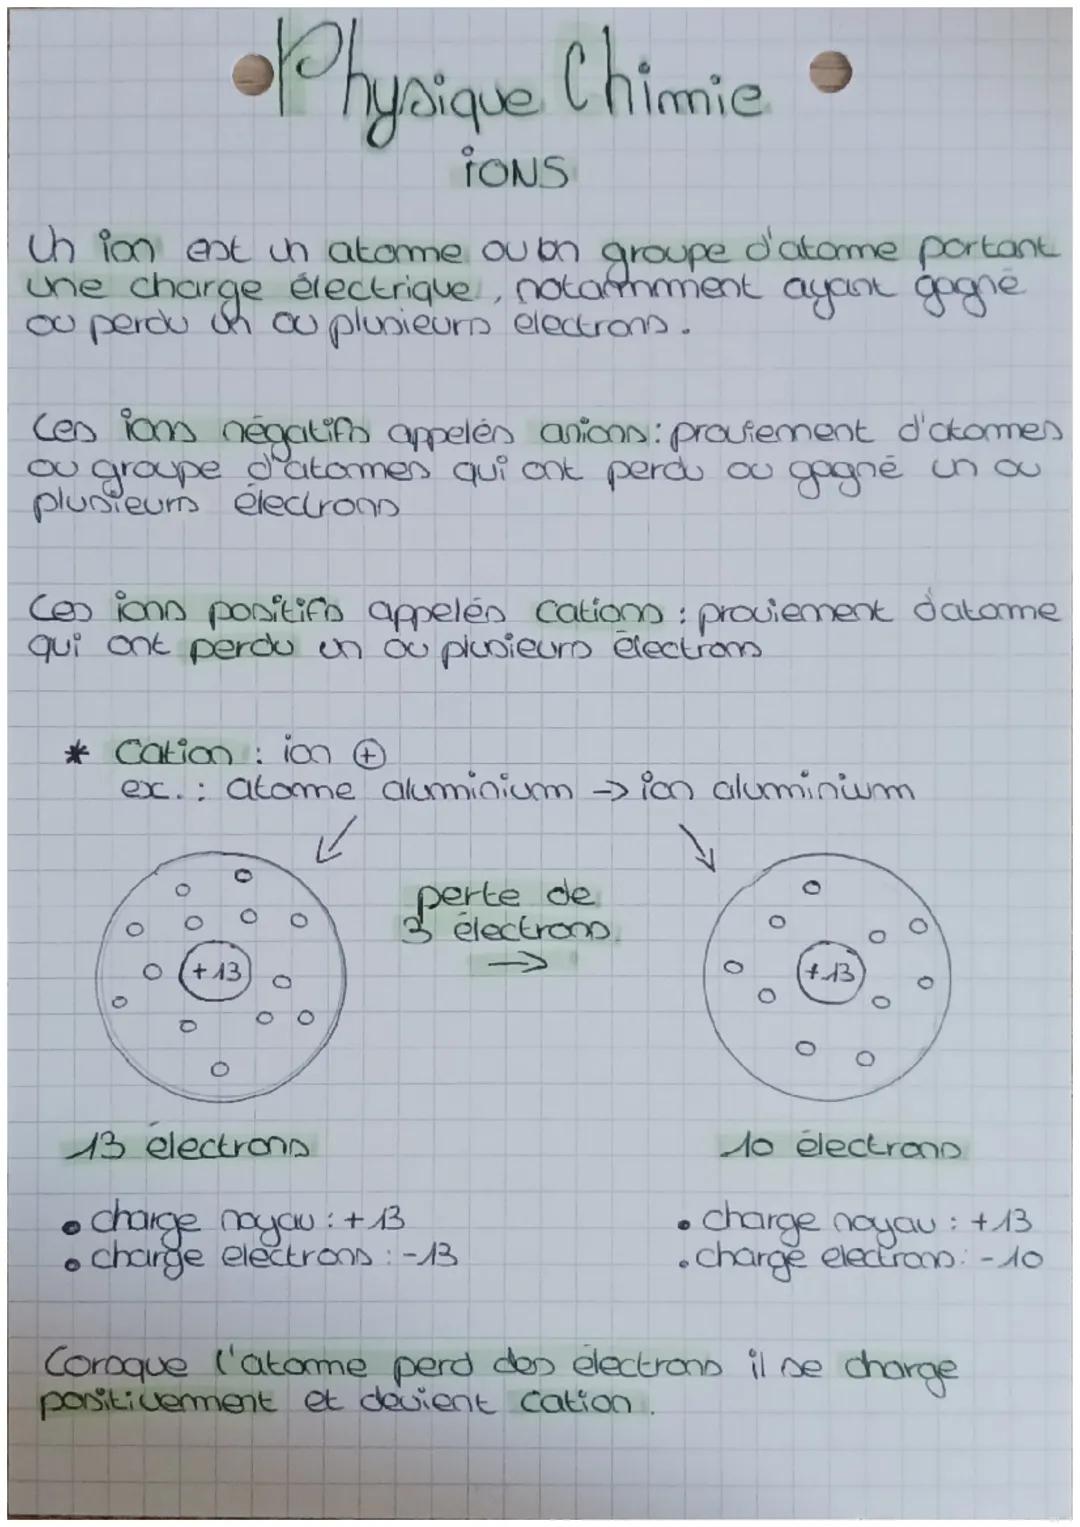 Physique Chimie
IONS
Un ion est un atome ou un groupe d'atome portant
une charge électrique, notamment ayant gagné
ou perdu un ou plusieurs électrons.
Ces ions négatifs appelés anions : proviennent d'atomes
ou groupe d'atomes qui ont perdu ou gagné un ou
plusieurs électrons
Ces ions positifs appelés cations : proviennent d'atome
qui ont perdu un ou plusieurs électrons
* Cation : ion ⊕
ex. : atome aluminium → ion aluminium
perte de
3 électrons
→
+13
+13
13 électrons
10 électrons
• charge noyau : +13
• charge electrons : -13
• charge noyau : +13
• charge electrons : -10
Lorsque l'atome perd des électrons il se charge
positivement et devient cation.